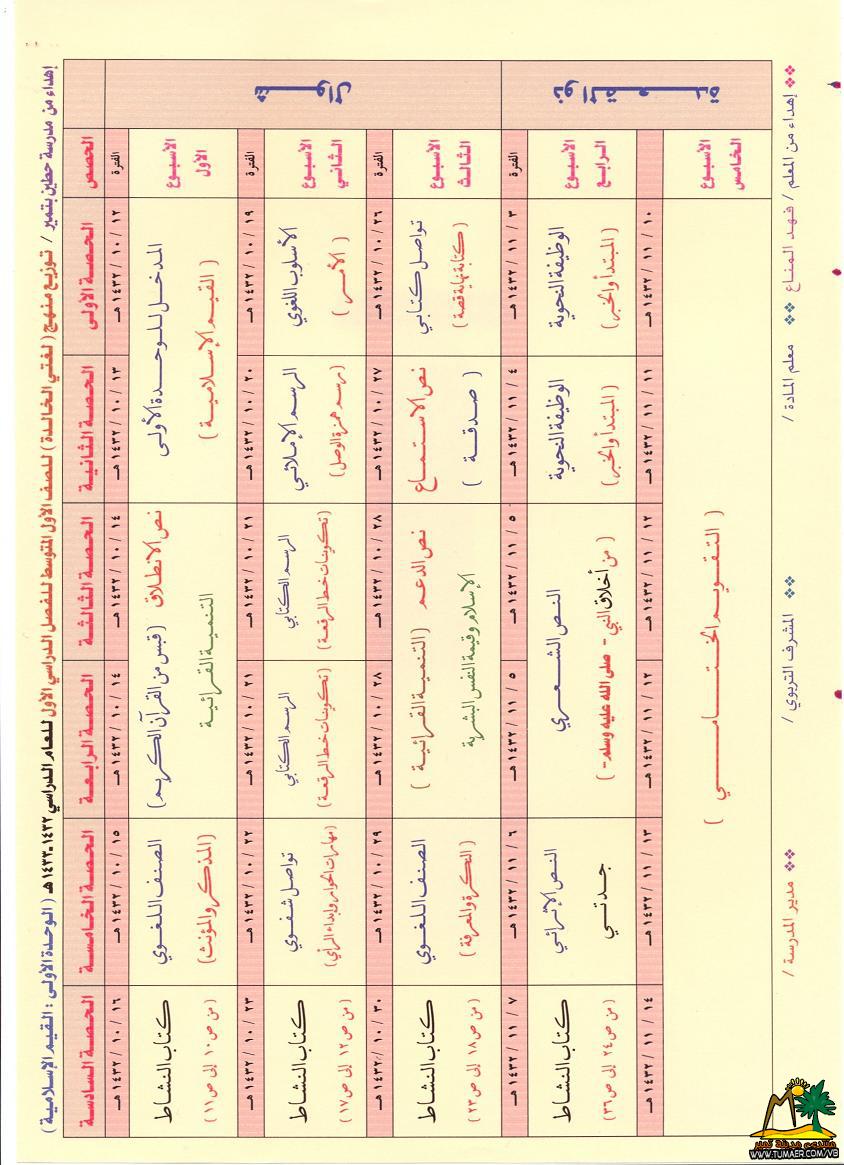 إهداء من مدرسة حطين بتمير / توزيع منهج ( لغتي الخالدة ) للصف الأول المتوسط للفصل الدراسي الأول للعام الدراسي ١٤٣٢-١٤٣٣ هـ ( الوحدة الأولى : القيم الإسلامية )
الحصص
الحصة الأولى
الحصة الثانية
الحصة الثالثة
الحصة الرابعة
الحصة الخامسة
الحصة السادسة
شوال
الفترة
١٤٣٢ / ١٠ / ١٢ هـ
١٤٣٢ / ١٠ / ١٣ هـ
١٤٣٢ / ١٠ / ١٤ هـ
١٤٣٢ / ١٠ / ١٤ هـ
١٤٣٢ / ١٠ / ١٥ هـ
١٤٣٢ / ١٠ / ١٦ هـ
الأسبوع
الأول
المدخل للوحدة الأولى
( القيم الإسلامية )
نص الانطلاق ( قبس من القرآن الكريم )
التنمية القرائية
الصنف اللغوي
( المذكر والمؤنث )
كتاب النشاط
( من ص ١٠ إلى ص ١١ )
الفترة
١٤٣٢ / ١٠ / ١٩ هـ
١٤٣٢ / ١٠ / ٢٠ هـ
١٤٣٢ / ١٠ / ٢١ هـ
١٤٣٢ / ١٠ / ٢١ هـ
١٤٣٢ / ١٠ / ٢٢ هـ
١٤٣٢ / ١٠ / ٢٣ هـ
الأسبوع
الثاني
الأسلوب اللغوي
( الأمر )
الرسم الإملائي
( رسم همزة الوصل )
الرسم الكتابي
( تكوينات خط الرقعة )
الرسم الكتابي
( تكوينات خط الرقعة )
تواصل شفوي
( مهارات الحوار وإبداء الرأي )
كتاب النشاط
( من ص ١٢ إلى ص ١٧ )
الفترة
١٤٣٢ / ١٠ / ٢٦ هـ
١٤٣٢ / ١٠ / ٢٧ هـ
١٤٣٢ / ١٠ / ٢٨ هـ
١٤٣٢ / ١٠ / ٢٨ هـ
١٤٣٢ / ١٠ / ٢٩ هـ
١٤٣٢ / ١٠ / ٣٠ هـ
الأسبوع
الثالث
تواصل كتابي
( كتابة نهاية قصة )
نص الاستماع
( صدقة )
نص الدعم ( التنمية القرائية )
الإسلام وقيمة النفس البشرية
الصنف اللغوي
( النكرة والمعرفة )
كتاب النشاط
( من ص ١٨ إلى ص ٢٣ )
ذو القعدة
الفترة
١٤٣٢ / ١١ / ٣ هـ
١٤٣٢ / ١١ / ٤ هـ
١٤٣٢ / ١١ / ٥ هـ
١٤٣٢ / ١١ / ٥ هـ
١٤٣٢ / ١١ / ٦ هـ
١٤٣٢ / ١١ / ٧ هـ
الأسبوع
الرابع
الوظيفة النحوية
( المبتدأ والخبر )
الوظيفة النحوية
( المبتدأ والخبر )
النص الشعري
( من أخلاق النبي - صلى الله عليه وسلم - )
النص الإثرائي
جدتي
كتاب النشاط
( من ص ٢٤ إلى ص ٣٦ )
١٤٣٢ / ١١ / ١٠ هـ
١٤٣٢ / ١١ / ١١ هـ
١٤٣٢ / ١١ / ١٢ هـ
١٤٣٢ / ١١ / ١٢ هـ
١٤٣٢ / ١١ / ١٣ هـ
١٤٣٢ / ١١ / ١٤ هـ
الأسبوع
الخامس
( التقويم الختامي )
إهداء من المعلم / فهد المناع
معلم المادة /
المشرف التربوي /
مدير المدرسة /
منتدى مدينة تمير
WWW.TUMAER.COM/VB